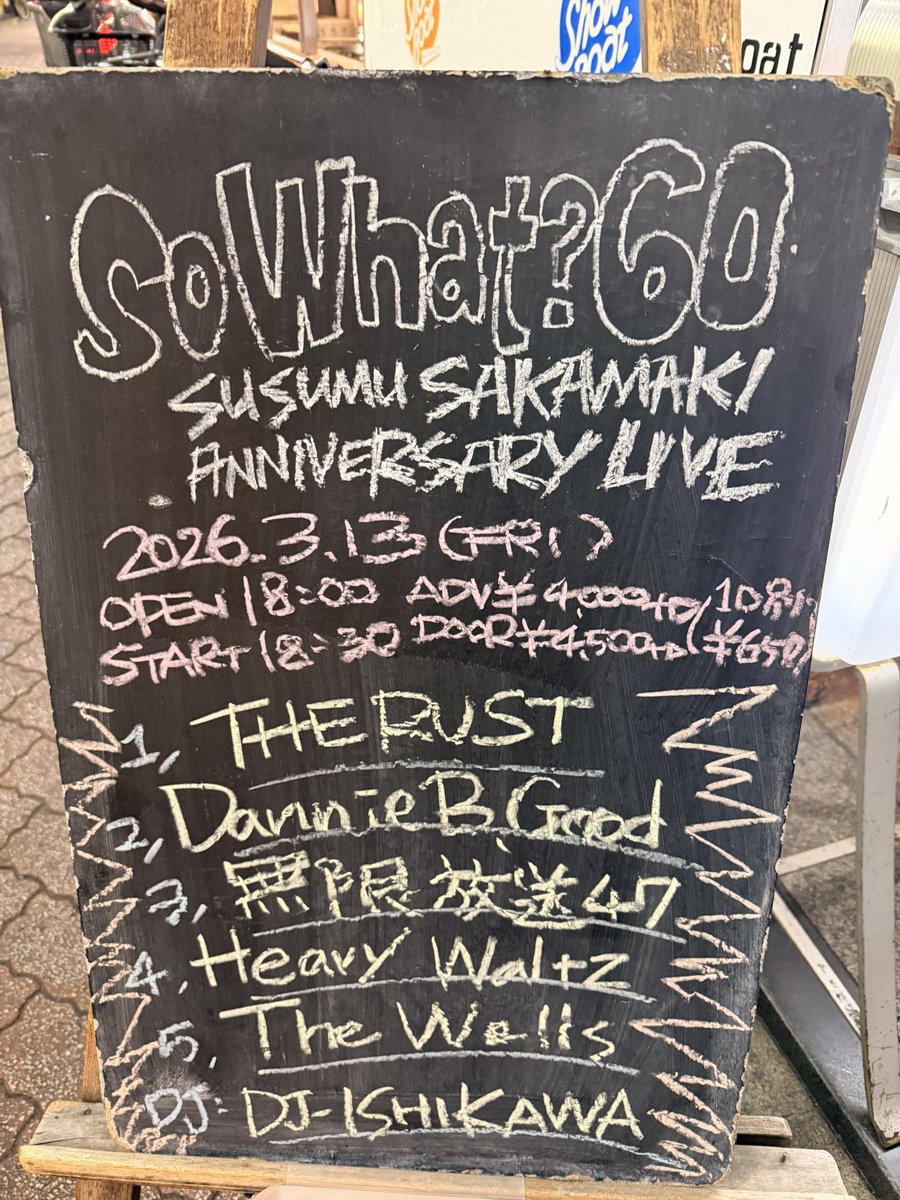 Show
boat
oat
So What? 60
SUSUMU SAKAMAKI
ANNIVERSARY LIVE
2026.3.13 (FRI)
OPEN 18:00 ADV ¥4,000+D (1D別
START 18:30 DOOR ¥4,500+D (¥650)
1, THE RUST
2, Dannie B. Good
3, 無限放送47
4, Heavy Waltz
5, The Wells
DJ: DJ-ISHIKAWA